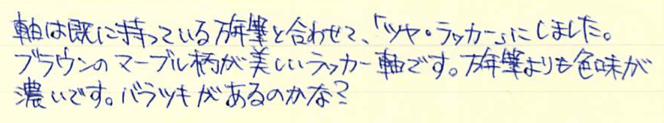 軸は既に持っている万年筆と合わせて、「ツヤ・ラッカー」にしました。
ブラウンのマーブル柄が美しいラッカー軸です。万年筆よりも色味が
濃いです。バラツキがあるのかな？